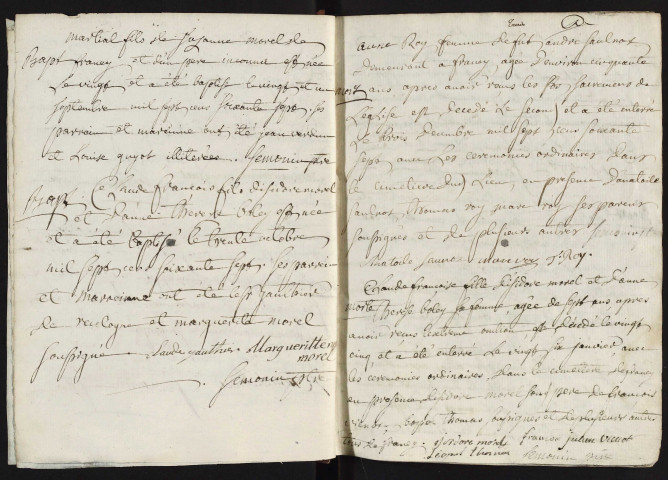 martial fils de Susanne morel de
Bapt franey et d'un pere inconnu est née
Le vingt et a été baptisé le vingt et un
septembre mil sept cens soixante sept. ses
parrain et marainne ont été jean
et Louise guyot illiterés. Semonin ptre
Bapt Claude françois fils d'isidore morel
et d'anne therese boley est née
et a été baptisé le trente octobre
mil sept cen soixante sept. ses parrain
et marainne ont été
de recologne et marguerite morel
soussignés. Claude gauthier. Marguerite
morel
Semonin ptre
anne Roy femme de fut andre saulnot
demeurant a franey agée d'environ cinquante
mort ans apres avoir reçu les sacremens de
L'eglise est decedé le second et a été enterré
Le trois decembre mil sept cens soixante
sept avec Les ceremonies ordinaires dans
le cimetiere du Lieu, en presence d'anatoile
saulnot thomas roy marc roy ses parens
soussignés et de plusieurs autres Semonin
Anatoile saunot marc roy T. Roy.
Claude françoise fille d'isidore morel et d'anne
morte therese boley sa femme, agée de sept ans apres
avoir reçu L'extreme onction est decedé le vingt
cinq et a été enterré le vingt six janvier avec
les ceremonies ordinaires, dans le cimetiere de franey
en presence d'isidore morel son pere de francois
thomas, soussignés et de plusieurs autres
tous de franey. isidore morel francois
thomas Semonin ptre